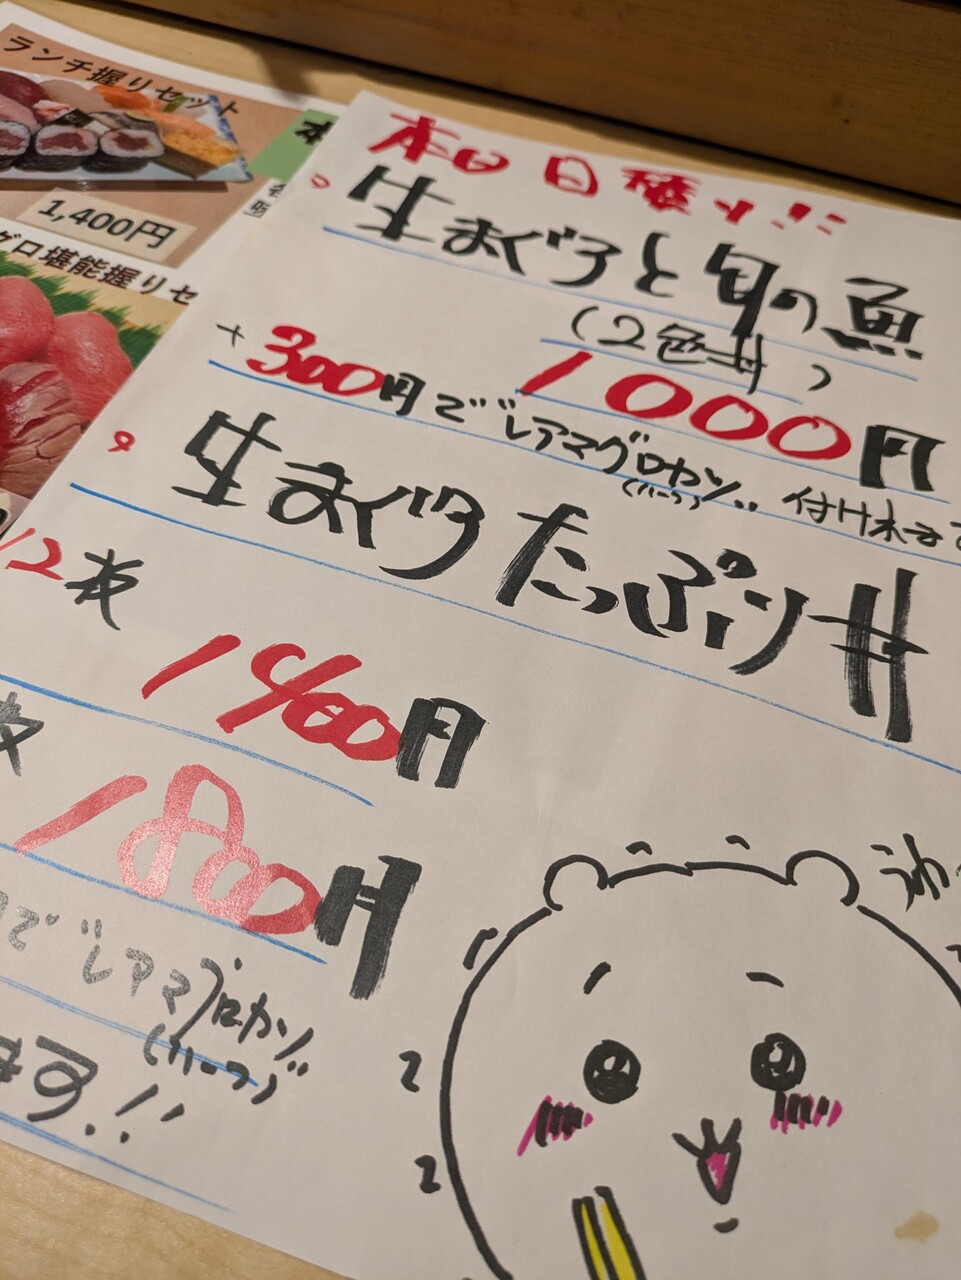 ランチ握りセット
1,400円
グロ堪能握りセ
本日 日替り
生まぐろと旬の魚
(2色丼)
1000円
+300円でレアマグロカツ付けれます
(ハーフ)
生まぐろたっぷり丼
12枚
1400円
枚
1800円
円でレアマグロカツ
(ハーフ)
ます!!